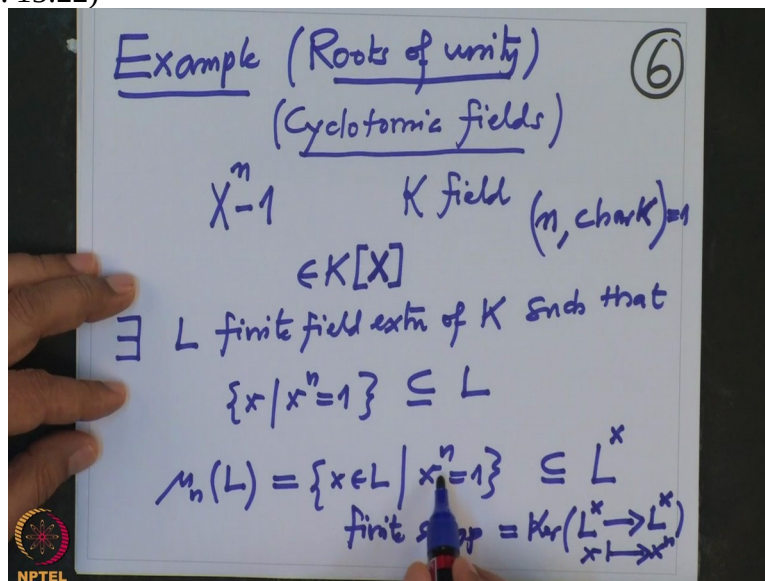 : 15:22)
Example (Roots of unity) 6
(Cyclotomic fields)
Xⁿ-1 K field (n, char K)=1
∈K[X]
∃ L finite field extn of K such that
{x | xⁿ=1} ⊆ L
μₙ(L) = {x∈L | xⁿ=1} ⊆ Lˣ
finite = Ker(Lˣ → Lˣ)
x ↦ xⁿ
NPTEL